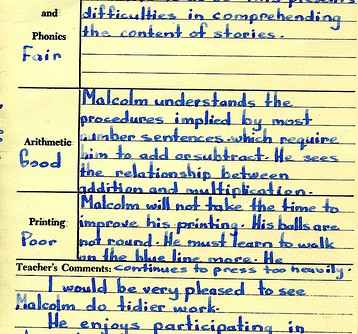 and
Phonics
Fair
difficulties in comprehending
the content of stories.
Arithmetic
Good
Malcolm understands the
procedures implied by most
number sentences which require
him to add or subtract. He sees
the relationship between
addition and multiplication.
Printing
Poor
Malcolm will not take the time to
improve his printing. His balls are
not round. He must learn to walk
on the blue line more. He
Teacher's Comments: continues to press too heavily.
I would be very pleased to see
Malcolm do tidier work.
He enjoys participating in